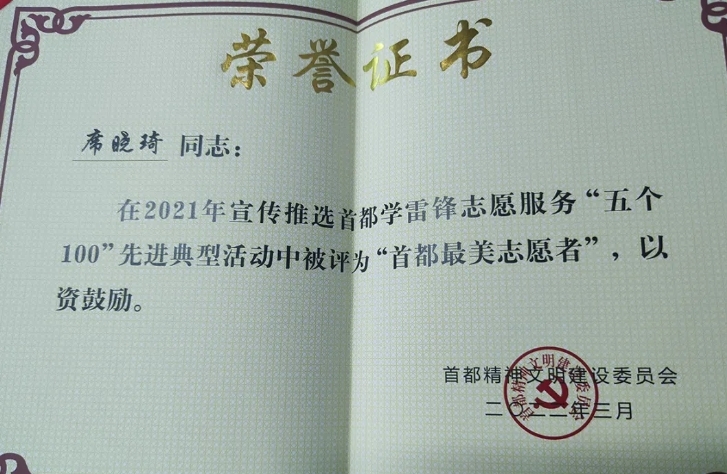 荣誉证书
席晓琦 同志：
在2021年宣传推选首都学雷锋志愿服务“五个
100”先进典型活动中被评为“首都最美志愿者”，以
资鼓励。
首都精神文明建设委员会
二〇二二年三月
首都精神文明建设委员会